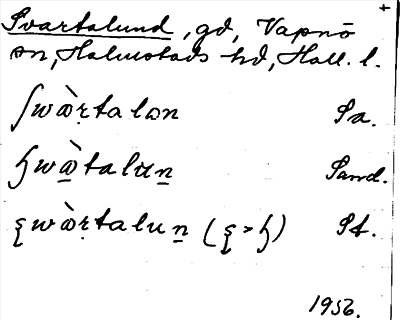 Svartalund, gd, Vapnö
sn, Halmstads hd, Hall. l.
ʃwὼṛtalɷn Sa.
ɧwὼ̱talɷṉ Sand.
ʂwὼṛtaluṉ (ʂ > ɧ) St.
1956.